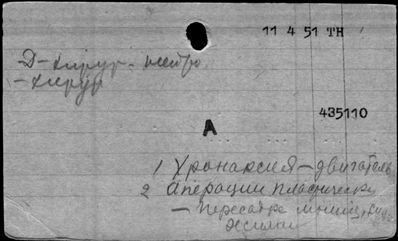 11 4 51 TH
Д-хирург. нейро.
-хирур
435110
A
1 Хронаксия-двигатель
2 Операции пластическ
- Пересадке мышц,